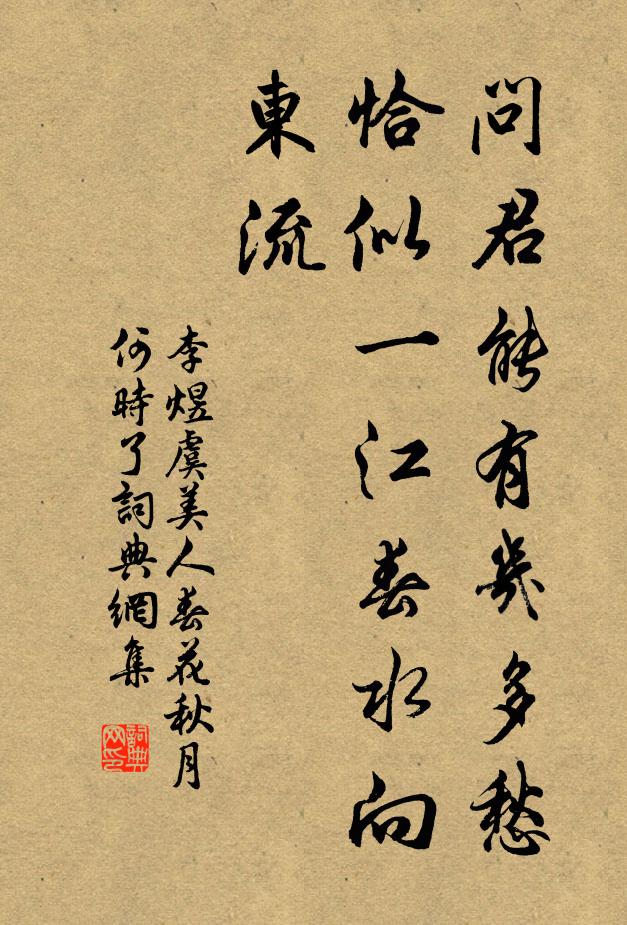 問君能有幾多愁
恰似一江春水向
東流
李煜虞美人春花秋月
何時了詞典網集
詞典网印